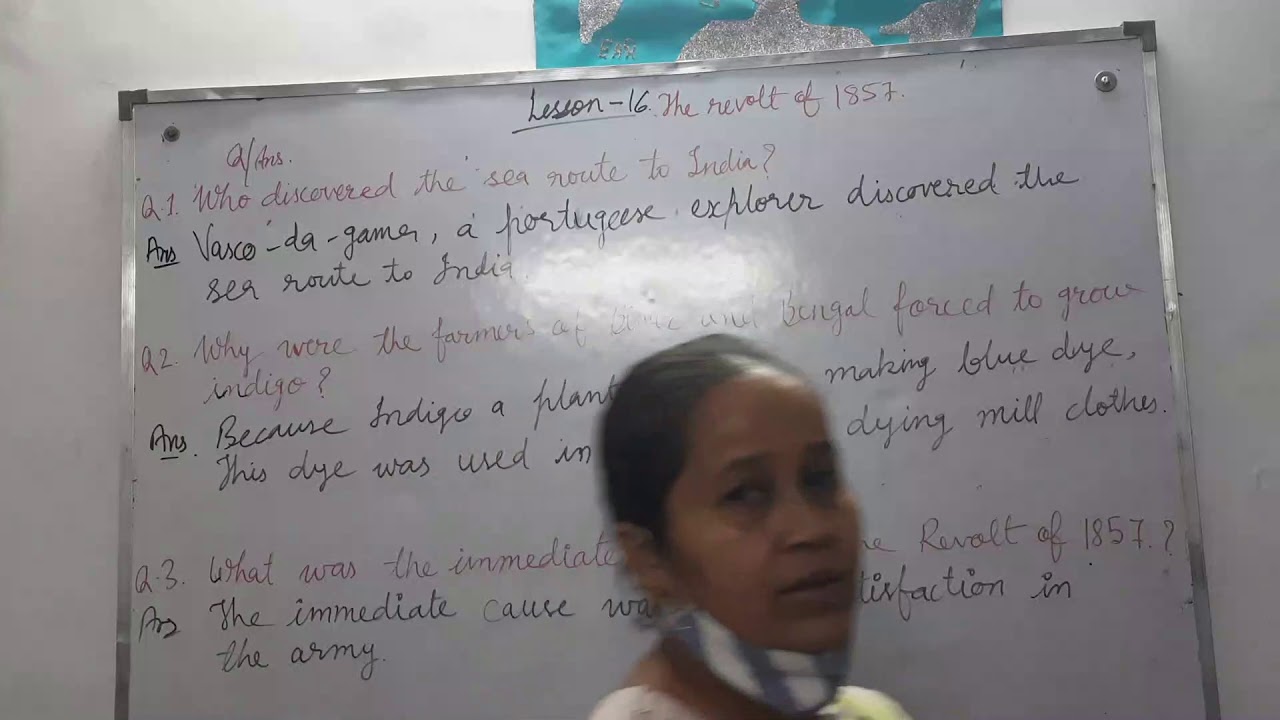 EAR
Lesson-16. The revolt of 1857.
Q/Ans.
Q.1. Who discovered the sea route to India?
Ans Vasco-da-gama, a portugeese explorer discovered the
sea route to India
Q2. Why were the farmers of and Bengal forced to grow
indigo?
Ans. Because Indigo a plant making blue dye,
This dye was used in dying mill clothes.
Q.3. What was the immediate Revolt of 1857.?
Ans The immediate cause was in
the army.